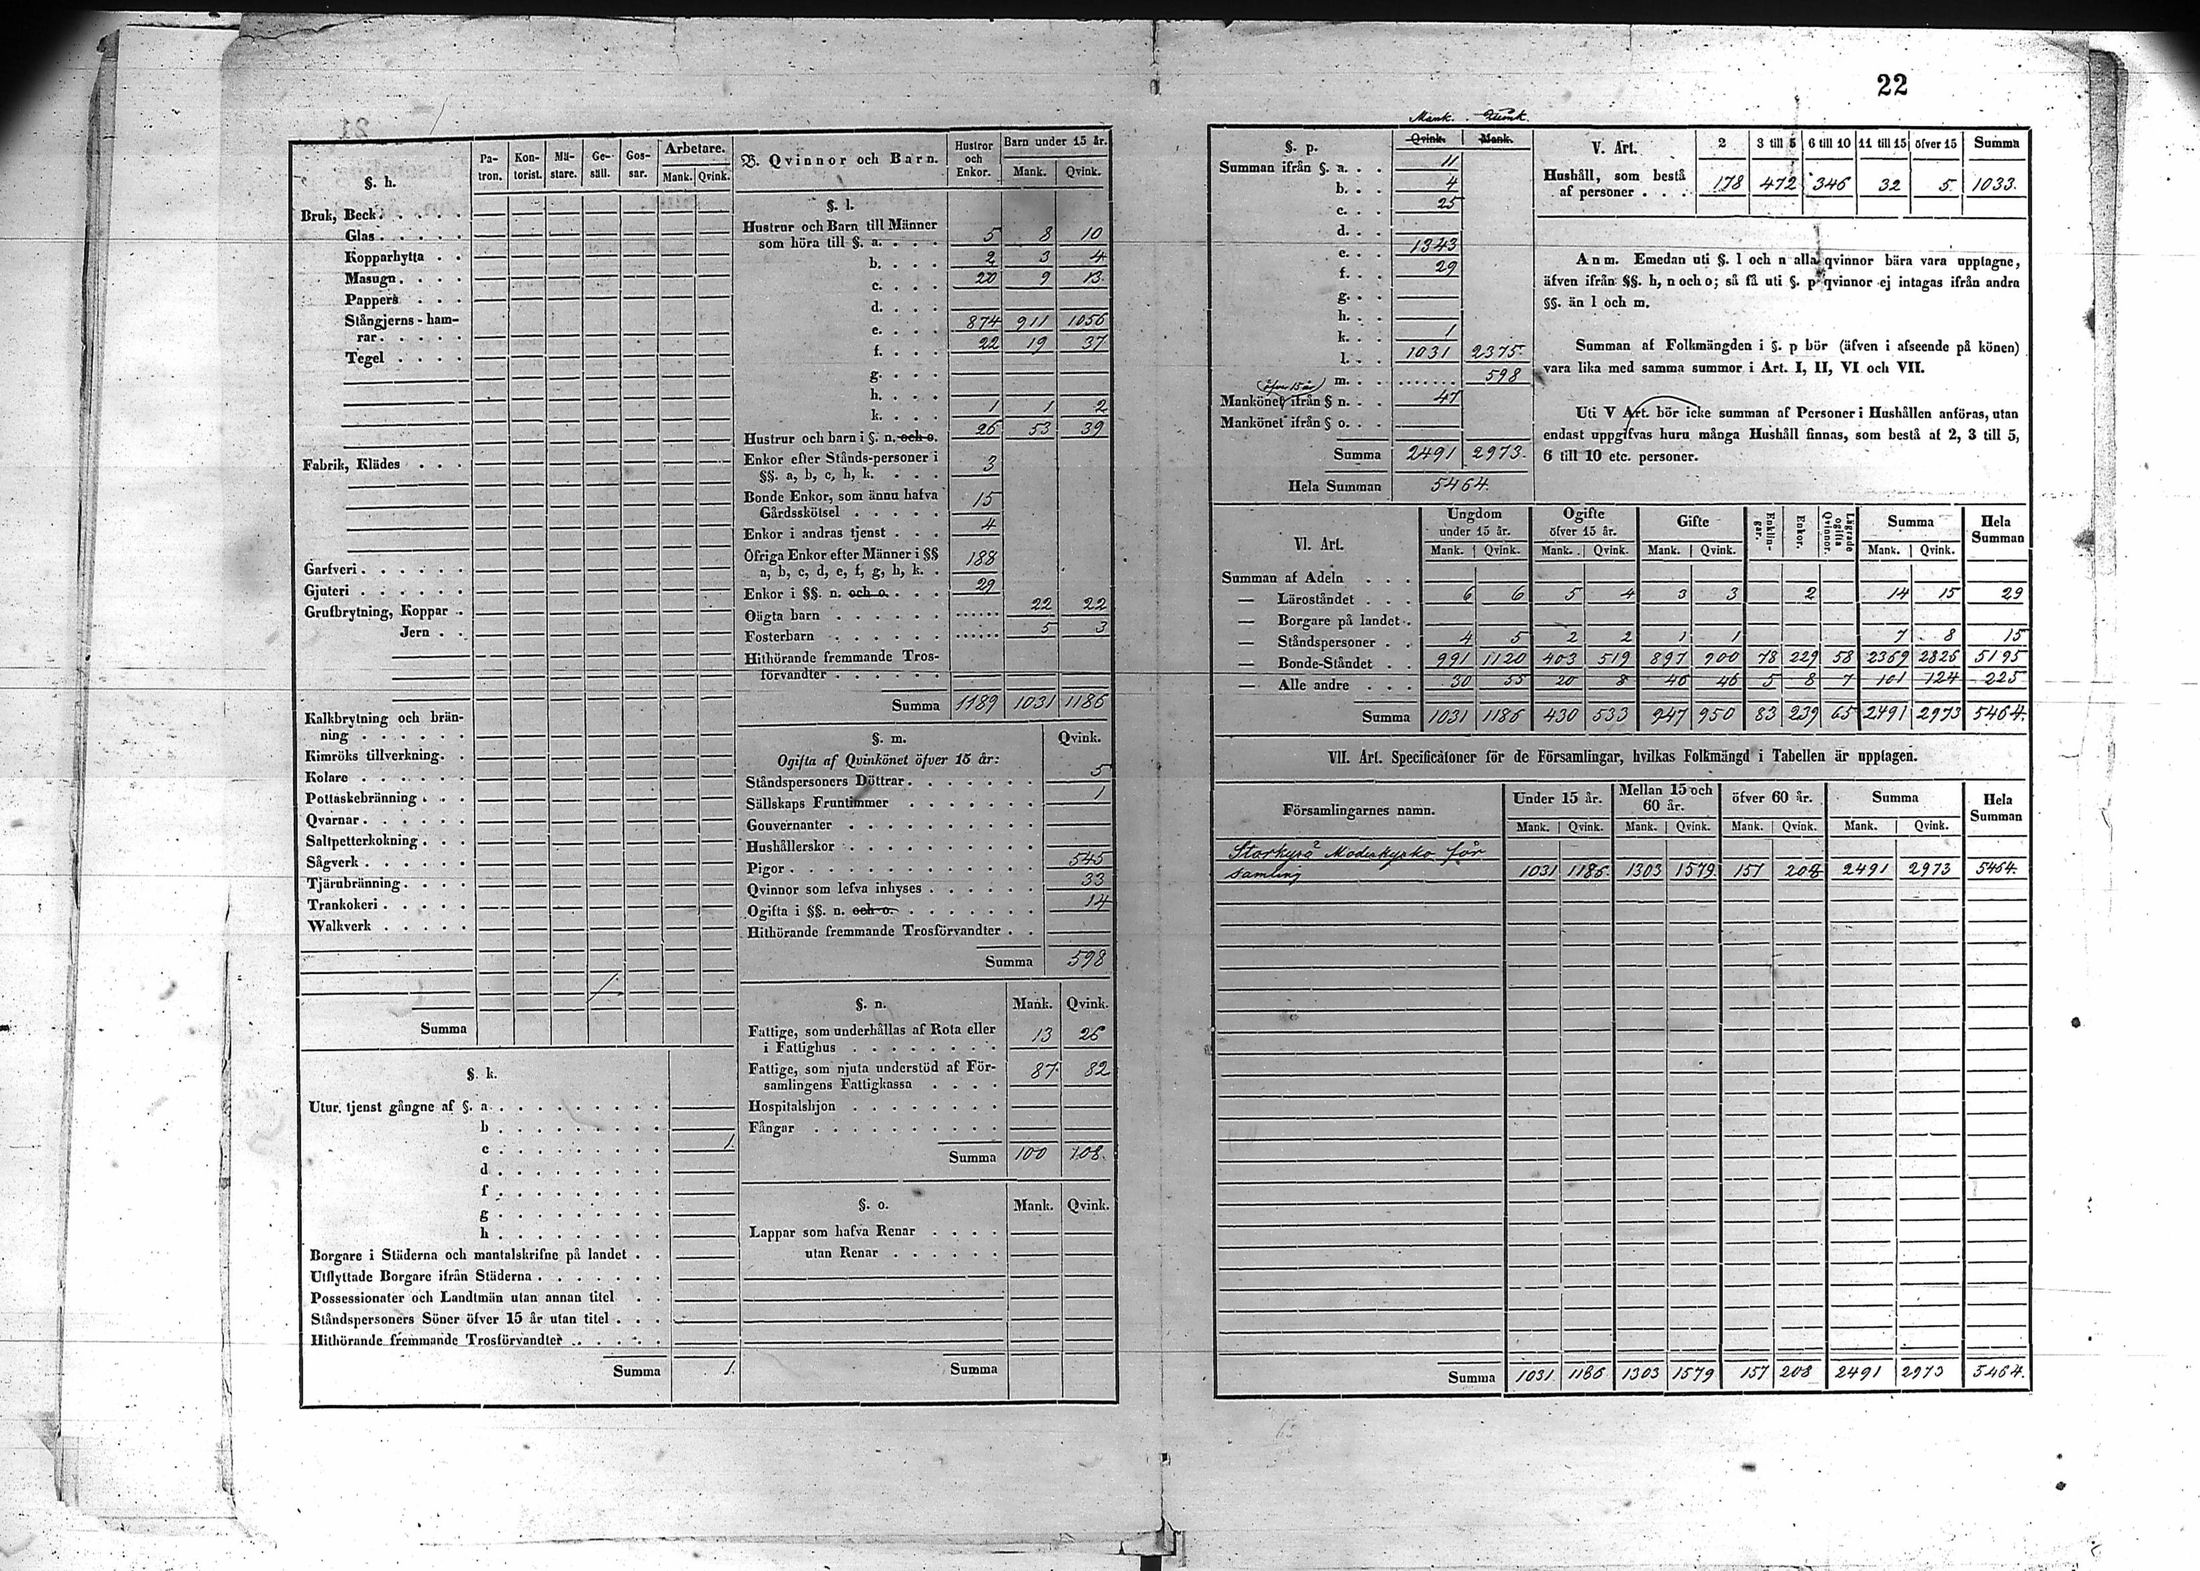 22
§. h.
Pa-tron. Kon-torist. Mä-stare. Ge-säll. Gos-sar. Arbetare. Mank. Qvink.
Bruk, Beck
Glas
Kopparhytta
Masugn
Pappers
Stångjerns-ham-
rar
Tegel
Fabrik, Klädes
Garfveri
Gjuteri
Grufbrytning, Koppar
Jern
Kalkbrytning och brän-
ning
Kimröks tillverkning.
Kolare
Pottaskebränning
Qvarnar
Saltpetterkokning
Sågverk
Tjärubränning
Trankokeri
Walkverk
Summa
§. k.
Utur tjenst gångne af §. a
b
c 1.
d
f
g
h
Borgare i Städerna och mantalskrifne på landet
Utflyttade Borgare ifrån Städerna
Possessionater och Landtmän utan annan titel
Ståndspersoners Söner öfver 15 år utan titel
Hithörande fremmande Trosförvandter
Summa 1.
B. Qvinnor och Barn. Hustror och Enkor. Barn under 15 år. Mank. Qvink.
§. l.
Hustrur och Barn till Männer
som höra till §. a. 5 8 10
b. 2 3 4
c. 20 9 13
d.
e. 874 911 1056
f. 22 19 37
g.
h.
k. 1 1 2
Hustrur och barn i §. n. och o. 26 53 39
Enkor efter Stånds-personer i
§§. a, b, c, h, k. 3
Bonde Enkor, som ännu hafva 15
Gårdsskötsel
Enkor i andras tjenst 4
Öfriga Enkor efter Männer i §§ 188
a, b, c, d, e, f, g, h, k.
Enkor i §§. n. och o. 29
Oägta barn 22 22
Fosterbarn 5 3
Hithörande fremmande Tros-
förvandter
Summa 1189 1031 1186
§. m. Qvink.
Ogifta af Qvinkönet öfver 15 år:
Ståndspersoners Döttrar 5
Sällskaps Fruntimmer 1
Gouvernanter
Hushållerskor
Pigor 545
Qvinnor som lefva inhyses 33
Ogifta i §§. n. och o. 14
Hithörande fremmande Trosförvandter
Summa 598
§. n. Mank. Qvink.
Fattige, som underhållas af Rota eller 13 26
i Fattighus
Fattige, som njuta understöd af För- 87 82
samlingens Fattigkassa
Hospitalshjon
Fångar
Summa 100 108.
§. o. Mank. Qvink.
Lappar som hafva Renar
utan Renar
Summa
Mank. Qvink.
§. p. Qvink. Mank.
Summan ifrån §. a. 11
b. 4
c. 25
d.
e. 1343
f. 29
g.
h.
k. 1
l. 1031 2375.
m. 598
(öfver 15 år)
Mankönet ifrån § n. 47
Mankönet ifrån § o.
Summa 2491 2973.
Hela Summan 5464.
V. Art. 2 3 till 5 6 till 10 11 till 15 öfver 15 Summa
Hushåll, som bestå
af personer 178 472 346 32 5. 1033.
Anm. Emedan uti §. l och n alla qvinnor bära vara upptagne,
äfven ifrån §§. h, n och o; så få uti §. p qvinnor ej intagas ifrån andra
§§. än l och m.
Summan af Folkmängden i §. p bör (äfven i afseende på könen)
vara lika med samma summor i Art. I, II, VI och VII.
Uti V Art. bör icke summan af Personer i Hushållen anföras, utan
endast uppgifvas huru många Hushåll finnas, som bestå af 2, 3 till 5,
6 till 10 etc. personer.
VI. Art. Ungdom under 15 år. Ogifte öfver 15 år. Gifte Enklin-gar. Enkor. Lägrade ogifta Qvinnor. Summa Hela Summan
Mank. Qvink. Mank. Qvink. Mank. Qvink. Mank. Qvink.
Summan af Adeln
— Läroståndet 6 6 5 4 3 3 2 14 15 29
— Borgare på landet
— Ståndspersoner 4 5 2 2 1 1 7 8 15
— Bonde-Ståndet 991 1120 403 519 897 900 78 229 58 2369 2826 5195
— Alle andre 30 55 20 8 46 46 5 8 7 101 124 225
Summa 1031 1186 430 533 947 950 83 239 65 2491 2973 5464.
VII. Art. Specificatoner för de Församlingar, hvilkas Folkmängd i Tabellen är upptagen.
Församlingarnes namn. Under 15 år. Mellan 15 och 60 år. öfver 60 år. Summa Hela Summan
Mank. Qvink. Mank. Qvink. Mank. Qvink. Mank. Qvink.
Storkyrö Moderkyrko för
samling 1031 1186. 1303 1579 157 208 2491 2973 5464.
Summa 1031 1186 1303 1579 157 208 2491 2973 5464.